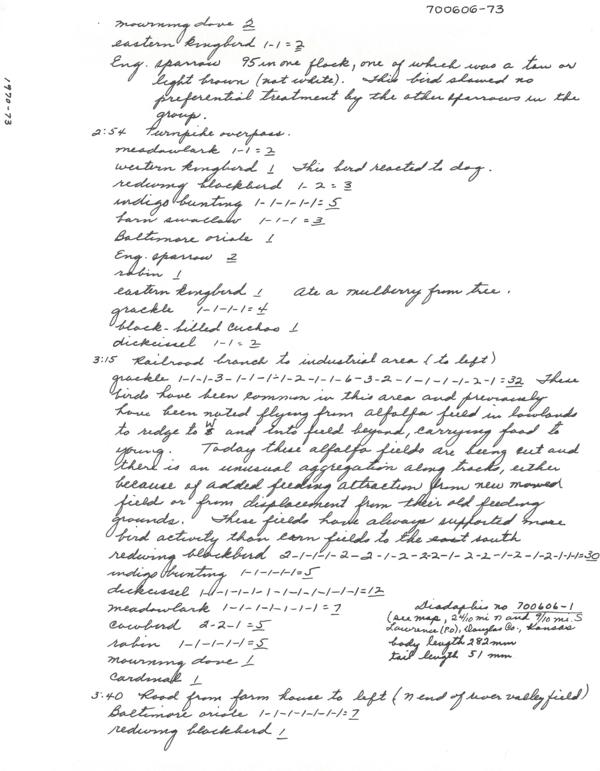 700606-73
1970-73
mourning dove 2
eastern kingbird 1-1=2
Eng. sparrow 95 in one flock, one of which was a tan or
light brown (not white). This bird showed no
preferential treatment by the other sparrows in the
group.
2:54 Turnpike overpass.
meadowlark 1-1=2
western kingbird 1 This bird reacted to dog.
redwing blackbird 1-2=3
indigo bunting 1-1-1-1-1=5
barn swallow 1-1-1=3
Baltimore oriole 1
Eng. sparrow 2
robin 1
eastern kingbird 1 Ate a mulberry from tree.
grackle 1-1-1-1=4
black-billed cuckoo 1
dickcissel 1-1=2
3:15 Railroad branch to industrial area (to left)
grackle 1-1-1-3-1-1-1-1-2-1-1-6-3-2-1-1-1-1-2-1=32 These
birds have been common in this area and previously
have been noted flying from alfalfa field in lowlands
to ridge to W and into field beyond, carrying food to
young. Today these alfalfa fields are being cut and
there is an unusual aggregation along tracks, either
because of added feeding attraction from new mowed
field or from displacement from their old feeding
grounds. These fields have always supported more
bird activity than corn fields to the east south
redwing blackbird 2-1-1-1-2-2-1-2-2-2-1-2-2-1-2-1-2-1-1-1=30
indigo bunting 1-1-1-1-1=5
dickcissel 1-1-1-1-1-1-1-1-1-1-1-1=12
meadowlark 1-1-1-1-1-1-1=7
cowbird 2-2-1=5
robin 1-1-1-1-1=5
mourning dove 1
Cardinal 1
Diadophis no 700606-1
(see map, 2 4/10 mi N and 9/10 mi. S
Lawrence (PO), Douglas Co., Kansas
body length 282 mm
tail length 51 mm
3:40 Road from farm house to left (N end of river valley field)
Baltimore oriole 1-1-1-1-1-1-1=7
redwing blackbird 1